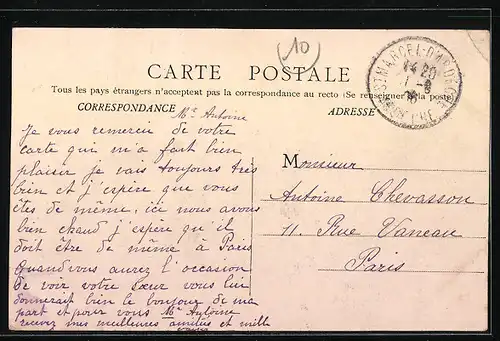 (10)
CARTE POSTALE
Tous les pays étrangers n'acceptent pas la correspondance au recto (Se renseigner à la poste)
CORRESPONDANCE
ADRESSE
Mr Antoine
Je vous remercie de votre
carte qui m'a fait bien
plaisir je vais toujours très
bien et j'espère que vous
êtes de même, ici nous avons
bien chaud j'espere qu'il
doit être de même à Paris
Quand vous aurez l'occasion
de voir votre Sœur vous lui
donnerait bien le bonjour de ma
part et pour vous Mr Antoine
recevez mes meilleures amitiés et mille
Monsieur
Antoine Chevasson
11. Rue Vaneau
Paris
ST MARCEL-D'ARDÈCHE
14 20
1 -8